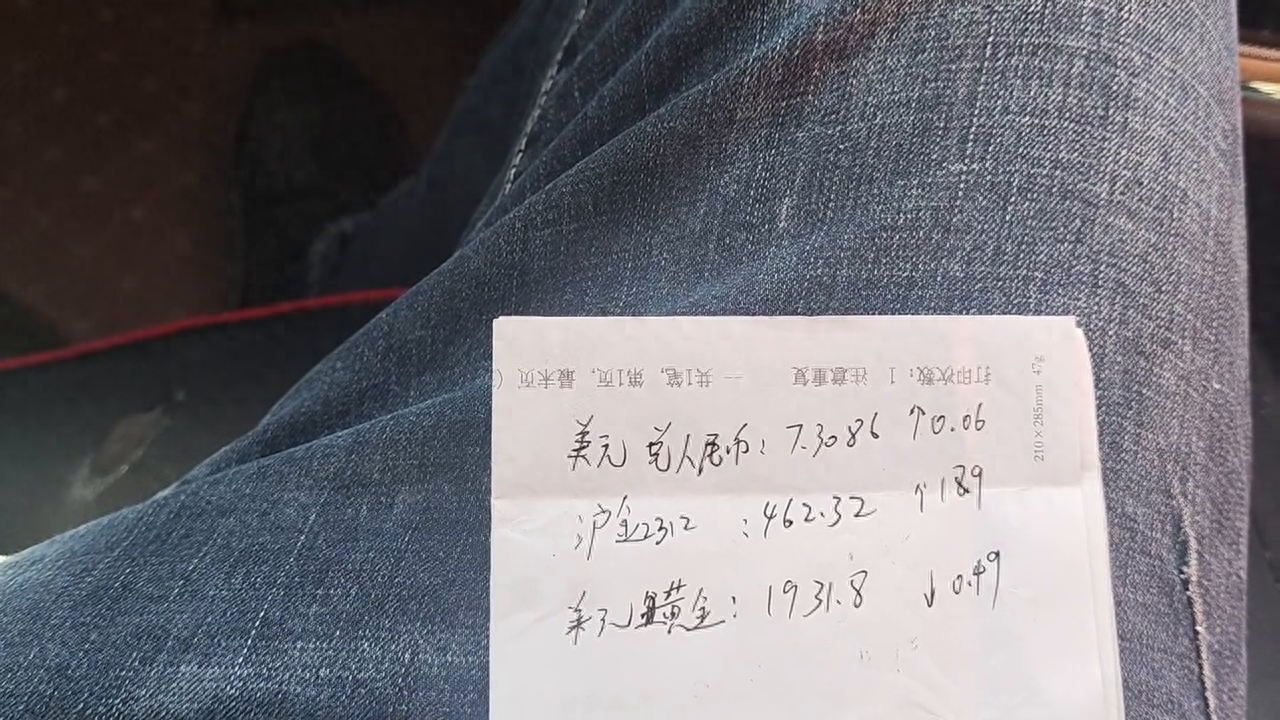 打印次数：1 注意重复 一共1笔，第1页，最末页（
210×285mm 47g
美元兑人民币：7.3086 ↑0.06
沪金2312：462.32 ↑1.89
美元黄金：1931.8 ↓0.49